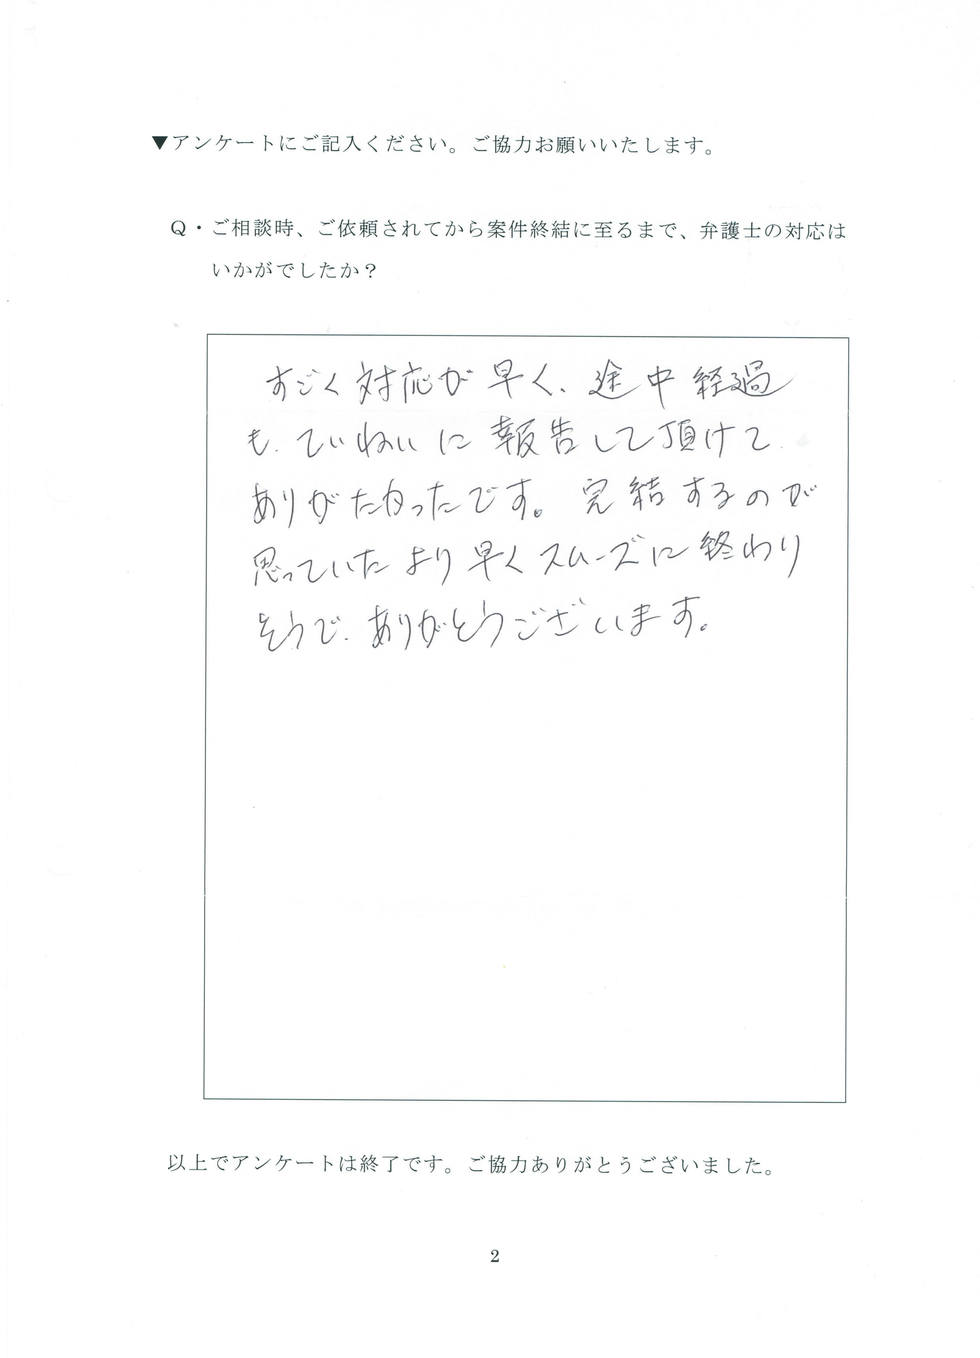 ▼アンケートにご記入ください。ご協力お願いいたします。
Q・ご相談時、ご依頼されてから案件終結に至るまで、弁護士の対応は
いかがでしたか？
すごく対応が早く、途中経過
も、ていねいに報告して頂けて、
ありがたかったです。完結するのが
思っていたより早くスムーズに終わり
そうで、ありがとうございます。
以上でアンケートは終了です。ご協力ありがとうございました。
2